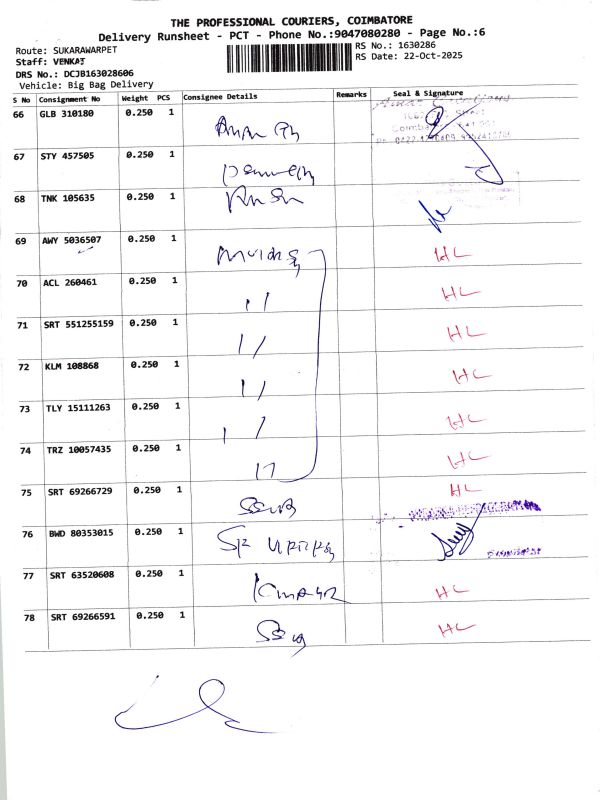 THE PROFESSIONAL COURIERS, COIMBATORE
Delivery Runsheet - PCT - Phone No.:9047080280 - Page No.:6
Route: SUKARAWARPET
RS No.: 1630286
Staff: VENKAT
RS Date: 22-Oct-2025
DRS No.: DCJB163028606
Vehicle: Big Bag Delivery
S No Consignment No Weight PCS Consignee Details Remarks Seal & Signature
66 GLB 310180 0.250 1
67 STY 457505 0.250 1
68 TNK 105635 0.250 1
69 AWY 5036507 0.250 1 HL
70 ACL 260461 0.250 1 11 HL
71 SRT 551255159 0.250 1 11 HL
72 KLM 108868 0.250 1 11 HL
73 TLY 15111263 0.250 1 11 HL
74 TRZ 10057435 0.250 1 11 HL
75 SRT 69266729 0.250 1 HL
76 BWD 80353015 0.250 1
77 SRT 63520608 0.250 1 HL
78 SRT 69266591 0.250 1 HL